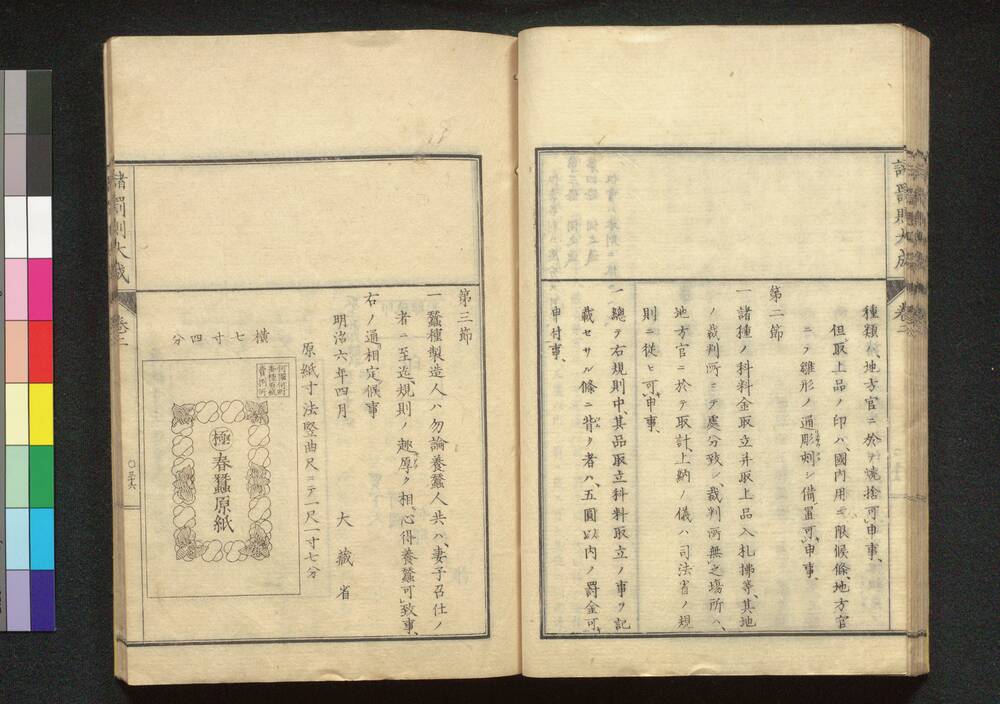 諸罰則大成
卷二
種類ハ、地方官ニ於テ焼捨可申事、
但、取上品ノ印ハ、國内用ニ限候條、地方官
ニ而雛形ノ通彫刻シ備置可申事、
第二節
一 諸種ノ科料金取立并取上品入札拂等、其地
ノ裁判所ニテ處分致シ、裁判所無之場所ハ、
地方官ニ於テ取計、上納ノ儀ハ司法省ノ規
則ニ從ヒ可申事、
一 總テ右規則中、其品取立科料取立ノ事ヲ記
載セサル條ニ背ク者ハ、五圓以内ノ罰金可
申付事、
第三節
一 蠶種製造人ハ勿論養蠶人共ハ、妻子召仕ノ
者ニ至迄、規則ノ趣厚ク相心得養蠶可致事、
右ノ通相定候事
明治六年四月
大藏省
原紙寸法竪曲尺ニテ一尺一寸七分
横七寸四分
極
春蠶原紙
諸罰則大成
卷二
○三十六